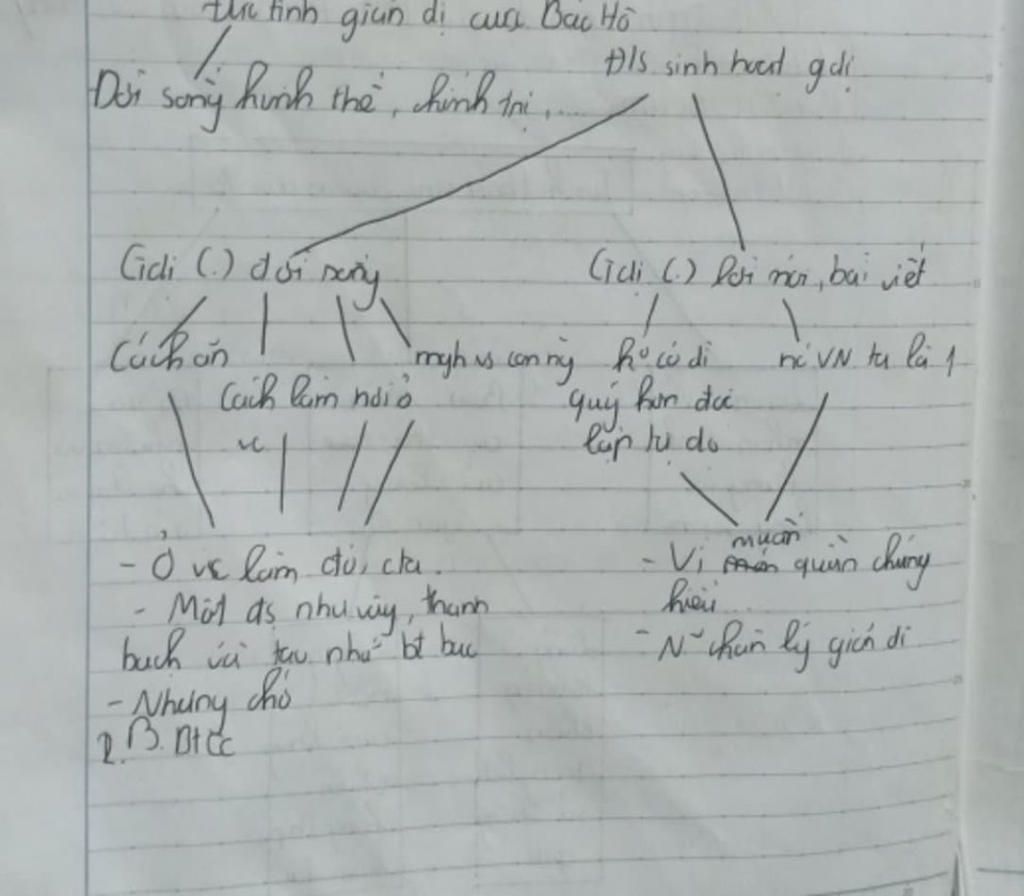 Đức tính giản dị của Bác Hồ
Đ/S sinh hoạt gdị
Đời sống hình thể, chính trị,...
Gdị (.) đời sống
Gdị (.) lời nói, bài viết
Cách ăn
mqh vs con ng
ko có dì
nc VN ta là 1
Cách làm nơi ở
quý hơn độc
vc
lập tự do
muốn
- Ở vc làm đời, cta.
- Vì quần chúng
- Một đs như vậy, thanh
hiểu
bạch và tao nhã bt bao
- N~ chân lý giản dị
- Nhưng chớ
2. B. Bt Cc